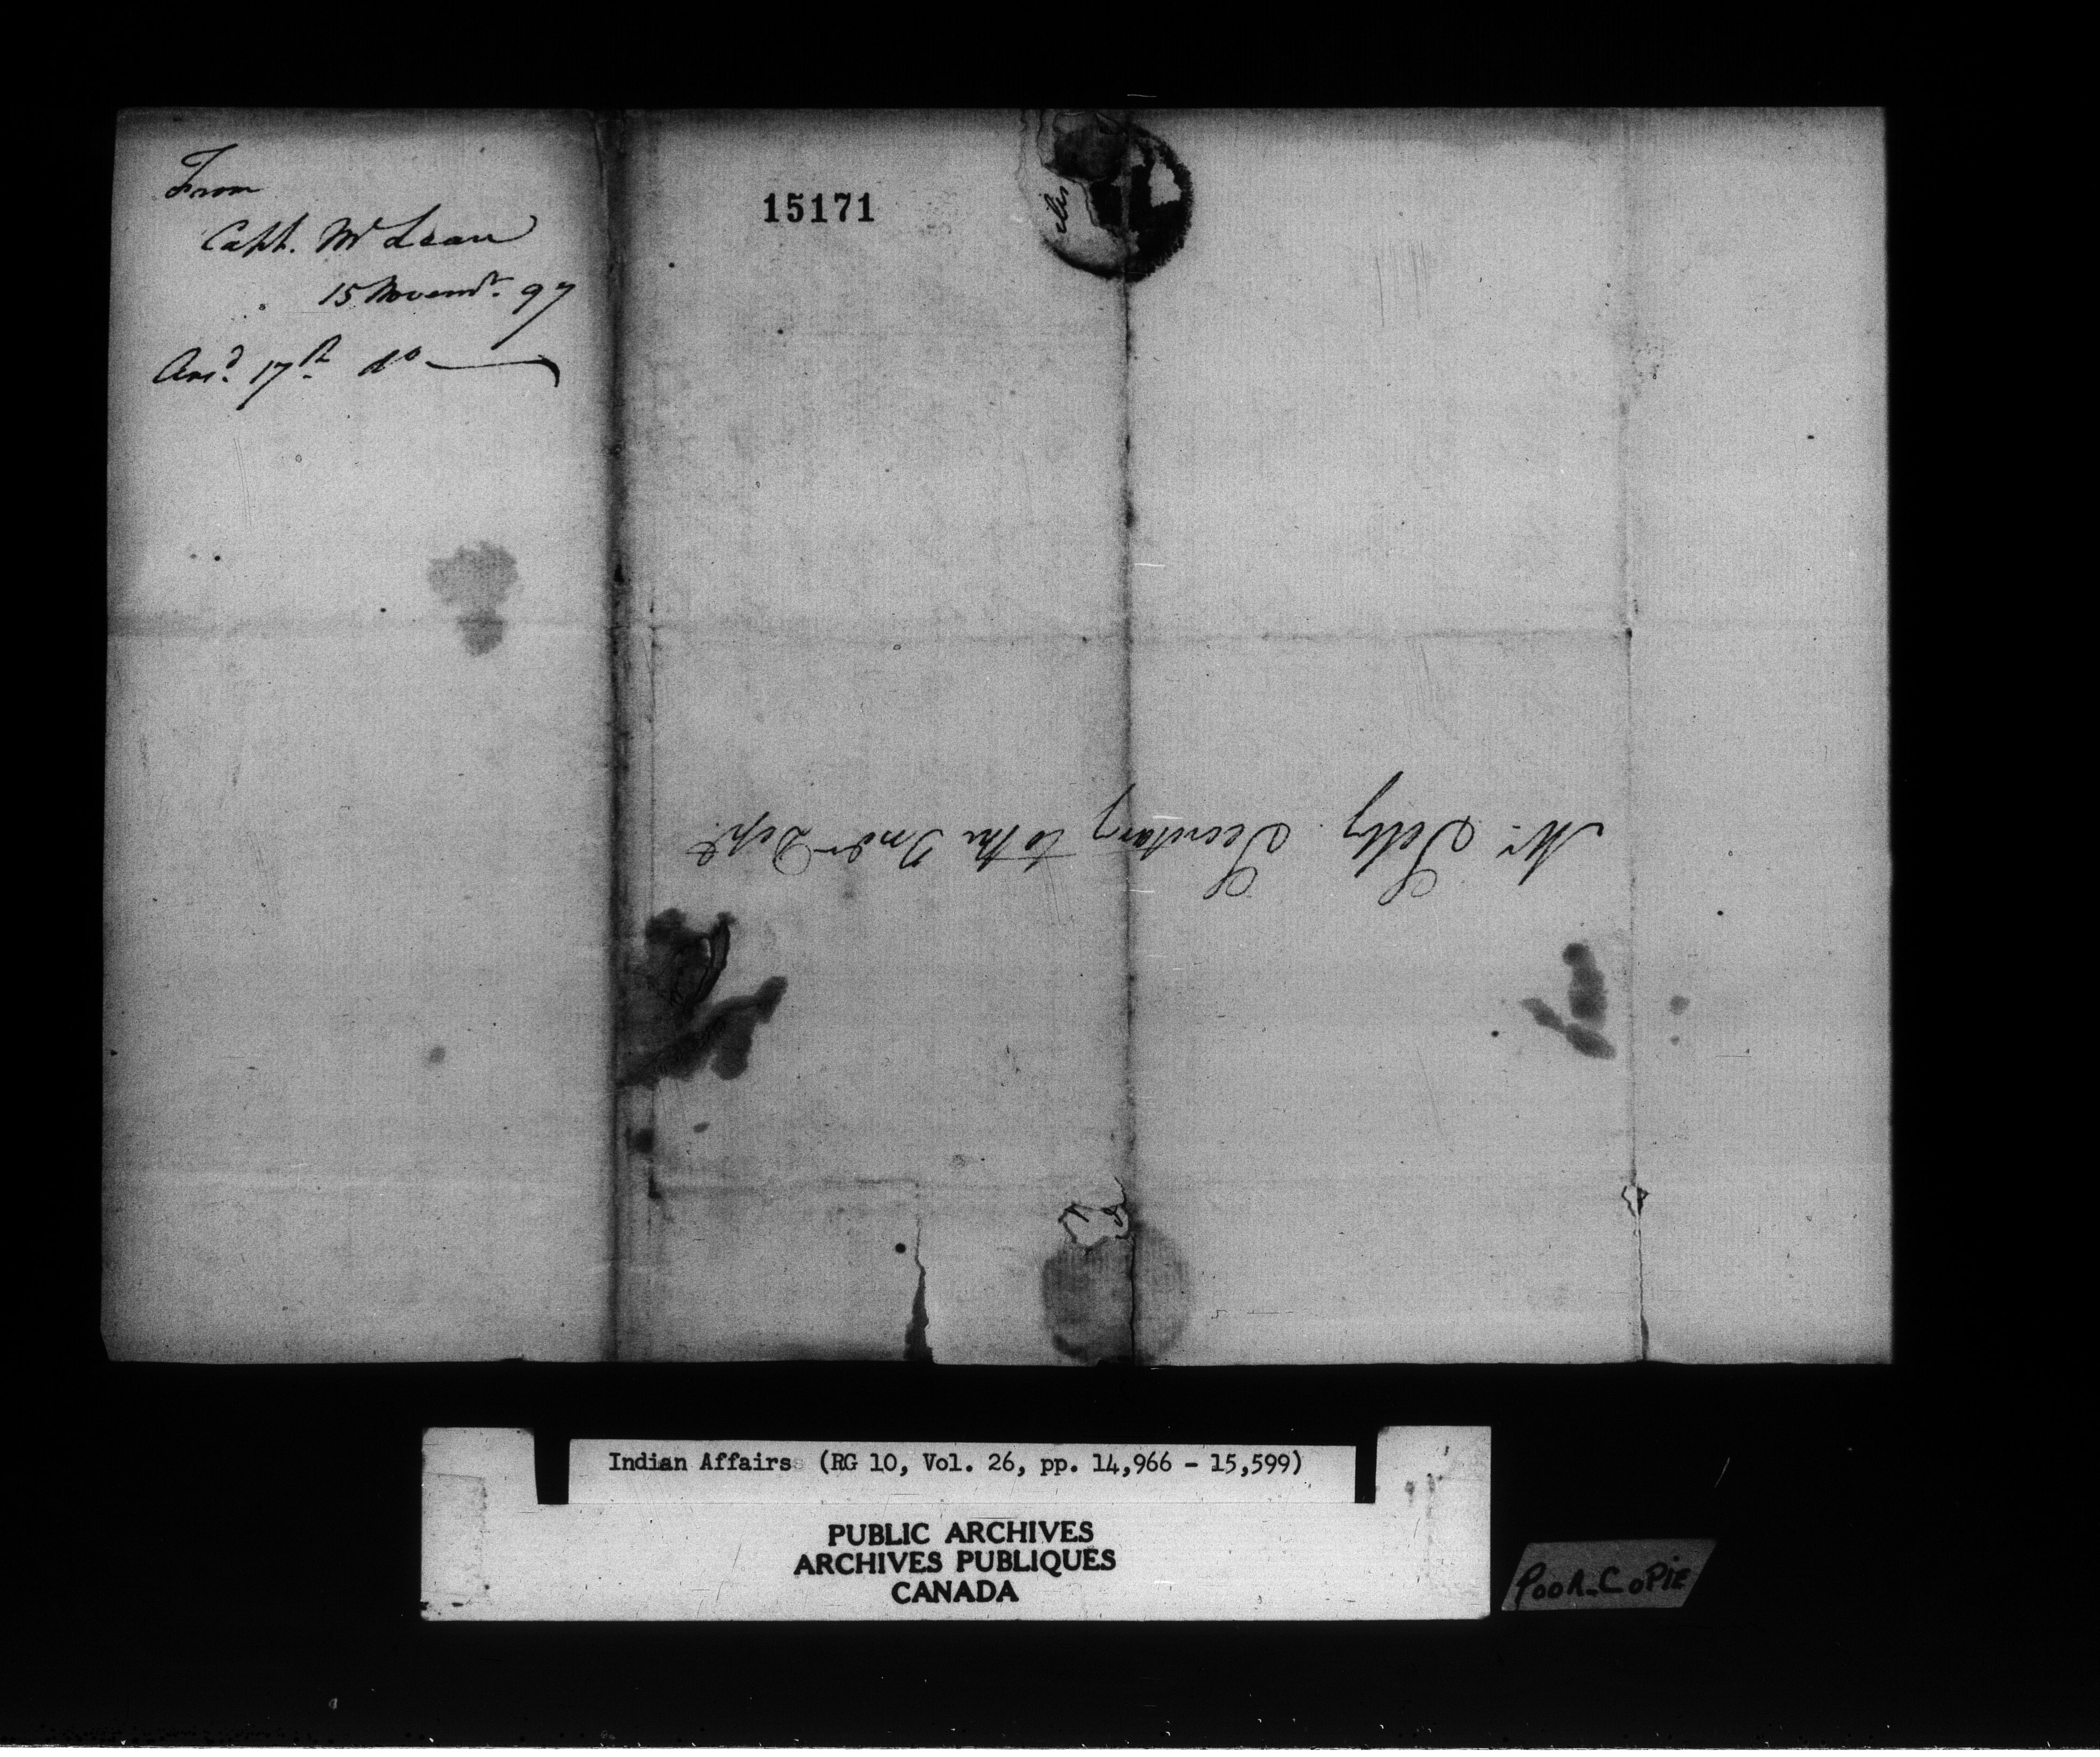 From
Capt. McLean
15 Novemr. 97
Ansd. 17th do
15171
Mr. Selby Secretary to the Indn Dept
Indian Affairs (RG 10, Vol. 26, pp. 14,966 - 15,599)
PUBLIC ARCHIVES
ARCHIVES PUBLIQUES
CANADA
POOR COPIE